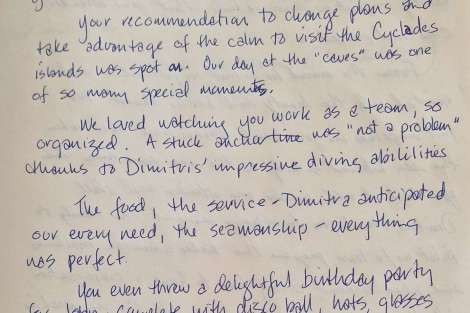 your recommendation to change plans and
take advantage of the calm to visit the Cyclades
islands was spot on. Our day at the "caves" was one
of so many special moments.
We loved watching you work as a team, so
organized. A stuck anchorline was "not a problem"
thanks to Dimitris' impressive diving abilities
The food, the service - Dimitra anticipated
our every need, the seamanship - everything
was perfect.
You even threw a delightful birthday party
complete with disco ball, hats, glasses